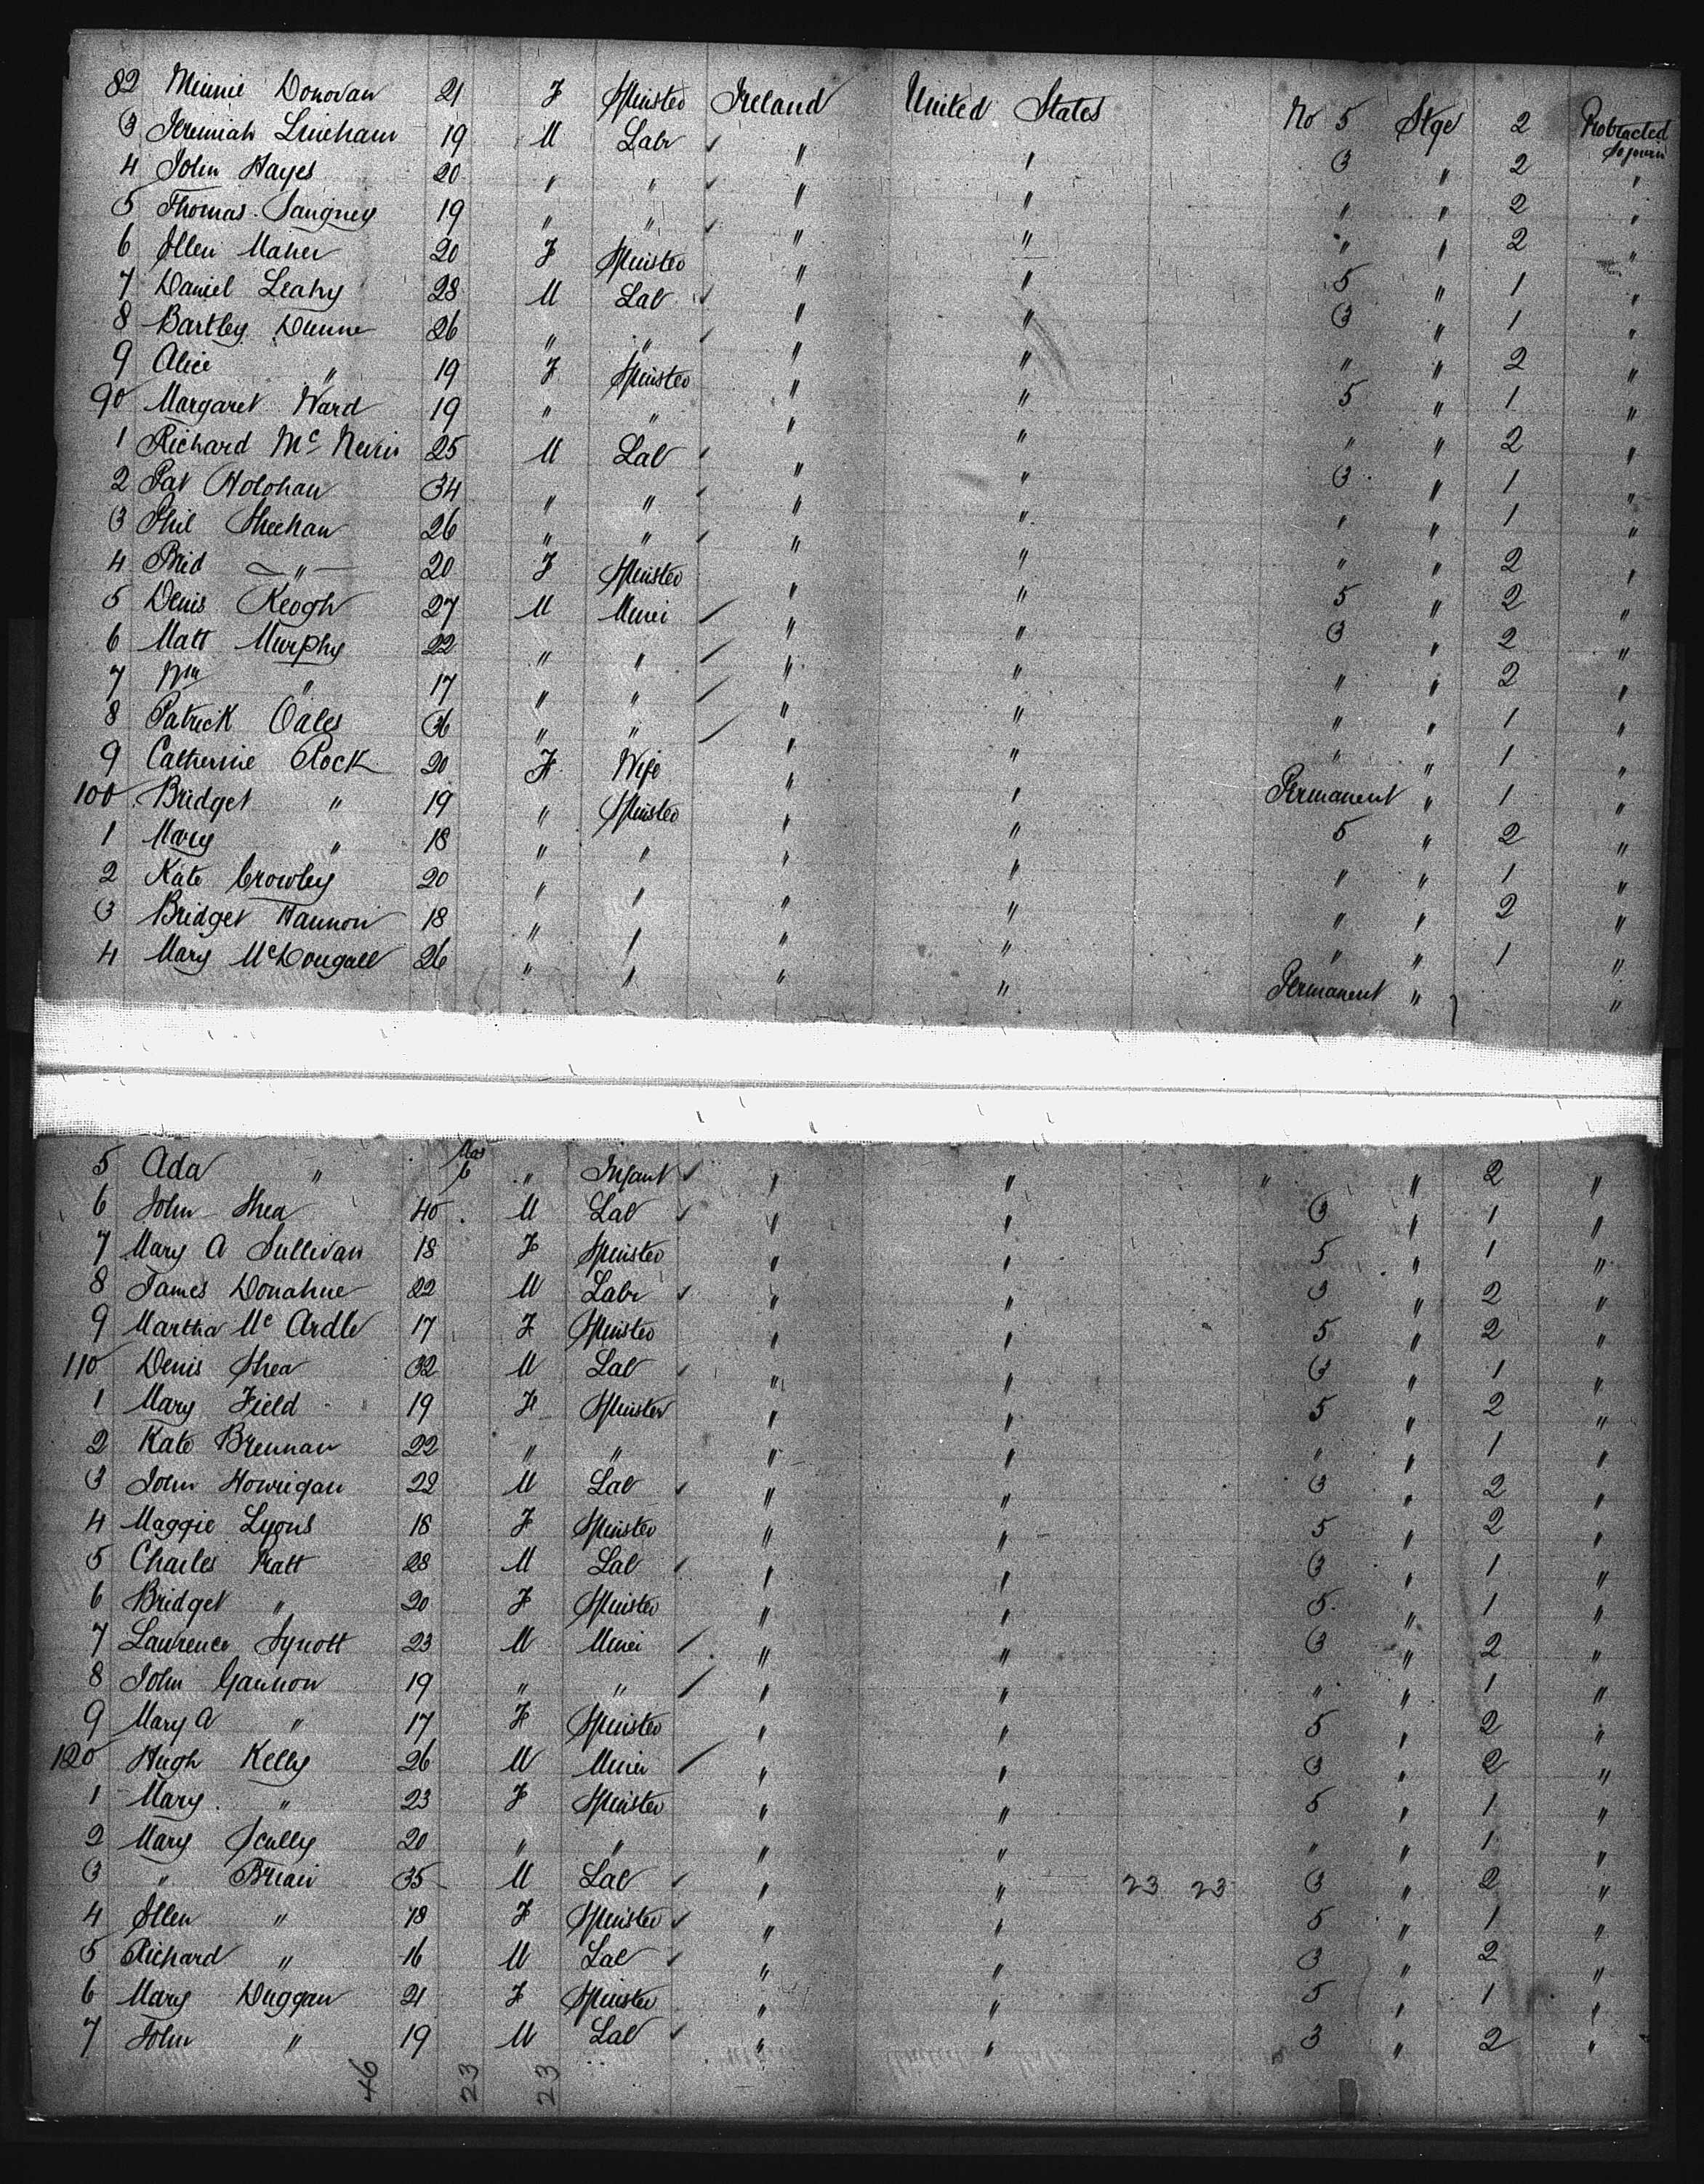 82 Minnie Donovan 21 F Spinster Ireland United States No 5 Stge 2 Protracted Sojourn
3 Jeremiah Lineham 19 M Labr ✓ " " 3 " 2 "
4 John Hayes 20 " " ✓ " " " " 2 "
5 Thomas Sangney 19 " " ✓ " " " " 2 "
6 Ellen Maher 20 F Spinster " " 5 " 1 "
7 Daniel Leahy 28 M Lab ✓ " " 3 " 1 "
8 Bartley Dunne 26 " " ✓ " " " " 2 "
9 Alice " 19 F Spinster " " 5 " 1 "
90 Margaret Ward 19 " " " " " " 2 "
1 Richard Mc Nevin 25 M Lab ✓ " " 3 " 1 "
2 Pat Holohan 34 " " ✓ " " " " 1 "
3 Phil Sheehan 26 " " ✓ " " " " 2 "
4 Brid " 20 F Spinster " " 5 " 2 "
5 Denis Keogh 27 M Miner ✓ " " 3 " 2 "
6 Matt Murphy 22 " " ✓ " " " " 2 "
7 Wm " 17 " " ✓ " " " " 1 "
8 Patrick Oales 36 " " ✓ " " " " 1 "
9 Catherine Rock 20 F Wife " " Permanent " 1 "
100 Bridget " 19 " Spinster " " 5 " 2 "
1 Mary " 18 " " " " " " 1 "
2 Kate Crowley 20 " " " " " " 2 "
3 Bridget Hannon 18 " " " " " " 1 "
4 Mary McDougall 26 " " " " Permanent " "
5 Ada " Mos 6 " Infant ✓ " " " " 2 "
6 John Shea 40 M Lab ✓ " " 3 " 1 "
7 Mary A Sullivan 18 F Spinster " " 5 " 1 "
8 James Donahue 22 M Labr ✓ " " 3 " 2 "
9 Martha Mc Ardle 17 F Spinster " " 5 " 2 "
110 Denis Shea 32 M Lab ✓ " " 3 " 1 "
1 Mary Field 19 F Spinster " " 5 " 2 "
2 Kate Brennan 22 " " " " " " 1 "
3 John Howrigan 22 M Lab ✓ " " 3 " 2 "
4 Maggie Lyons 18 F Spinster " " 5 " 2 "
5 Charles Pratt 28 M Lab ✓ " " 3 " 1 "
6 Bridget " 20 F Spinster " " 5 " 1 "
7 Lawrence Synott 23 M Miner ✓ " " 3 " 2 "
8 John Gannon 19 " " ✓ " " " " 1 "
9 Mary A " 17 F Spinster " " 5 " 2 "
120 Hugh Kelly 26 M Miner ✓ " " 3 " 2 "
1 Mary " 23 F Spinster " " 5 " 1 "
2 Mary Scully 20 " " " " " " 1 "
3 " Briain 35 M Lab ✓ " " 23 23 3 " 2 "
4 Ellen " 18 F Spinster ✓ " " 5 " 1 "
5 Richard " 16 M Lab ✓ " " 3 " 2 "
6 Mary Duggan 21 F Spinster " " 5 " 1 "
7 John " 19 M Lab ✓ " " 3 " 2 "
46 23 23